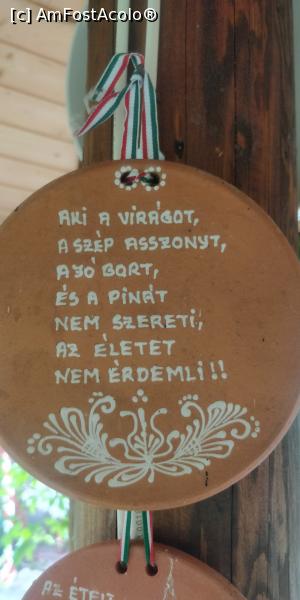 [c] AmFostAcolo®
AKI A VIRÁGOT,
A SZÉP ASSZONYT,
A JÓ BORT,
ÉS A PINÁT
NEM SZERETI,
AZ ÉLETET
NEM ÉRDEMLI!!
AZ